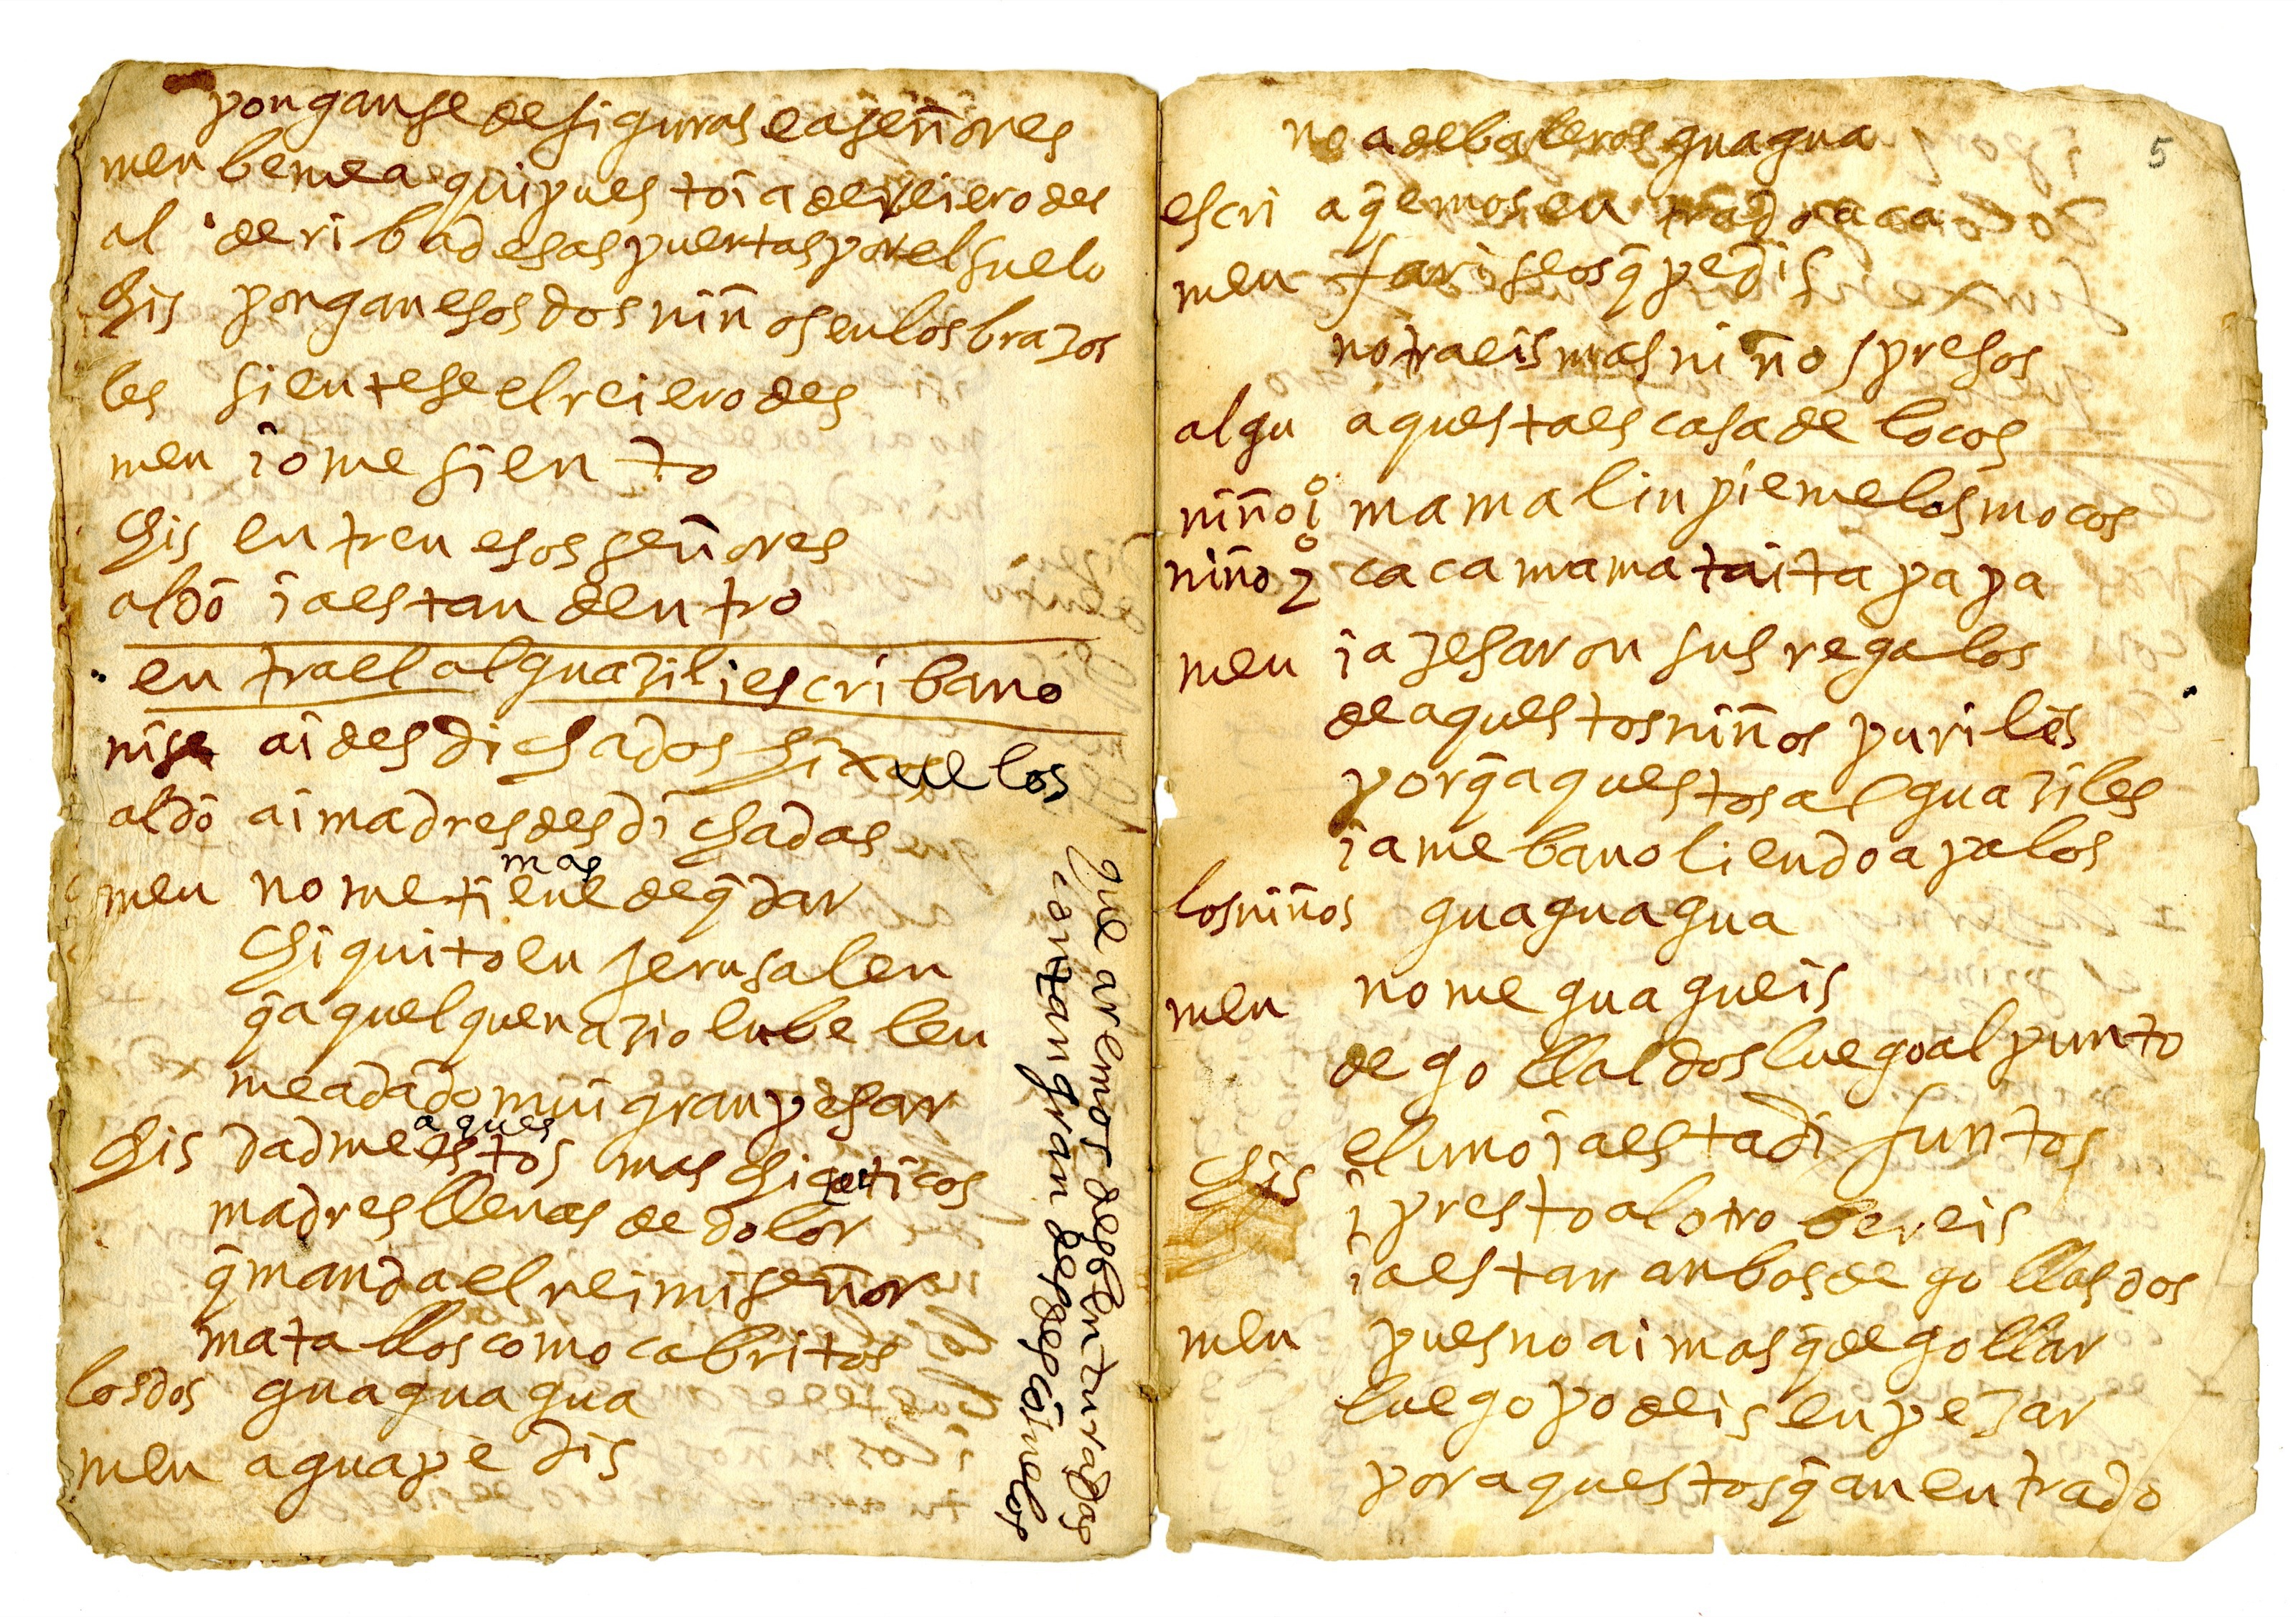 ponganse de figuras ea señores
men beme aqui puesto ia de rei erodes
al deribad esas puertas por el suelo
chis pongan esos dos niños en los brazos
les sientese el rei erodes
men io me siento
chis entren esos señores
aldō ia estan dentro
entra el alguazil i escribano
nise ai desdichados hixuelos
aldō ai madres desdichadas
mas
men no me tiene de q̄dar
chiquito en jerusalen
q̄ aquel que nazio en belen
me a dado mui gran pesar
aques
chis dadme estos mas chiquiticos
madres llenas de dolor
q̄ manda el rei mi señor
matallos como cabritos
los dos gua gua gua
men agua pedis
que aremos desbenturadas
con tan gran desconsuelo
5
no a de baleros gua gua
escri a q̄ emos entrado aca
men fariseos q̄ pedis
no traeis mas niños presos
algu aquesta es casa de locos
niño i° mama linpieme los mocos
niño 2° caca mama taita papa
men ia zesaron sus regalos
de aquestos niños puriles
porq̄ aquestos alguaziles
ia me ban oliendo a palos
los niños gua gua gua
men no me guagueis
degollaldos luego al punto
chis el uno ia esta difuntos
i presto al otro bereis
ia estan anbos degollados
men pues no ai mas q̄ degollar
luego podeis enpezar
por aquestos q̄ an entrado